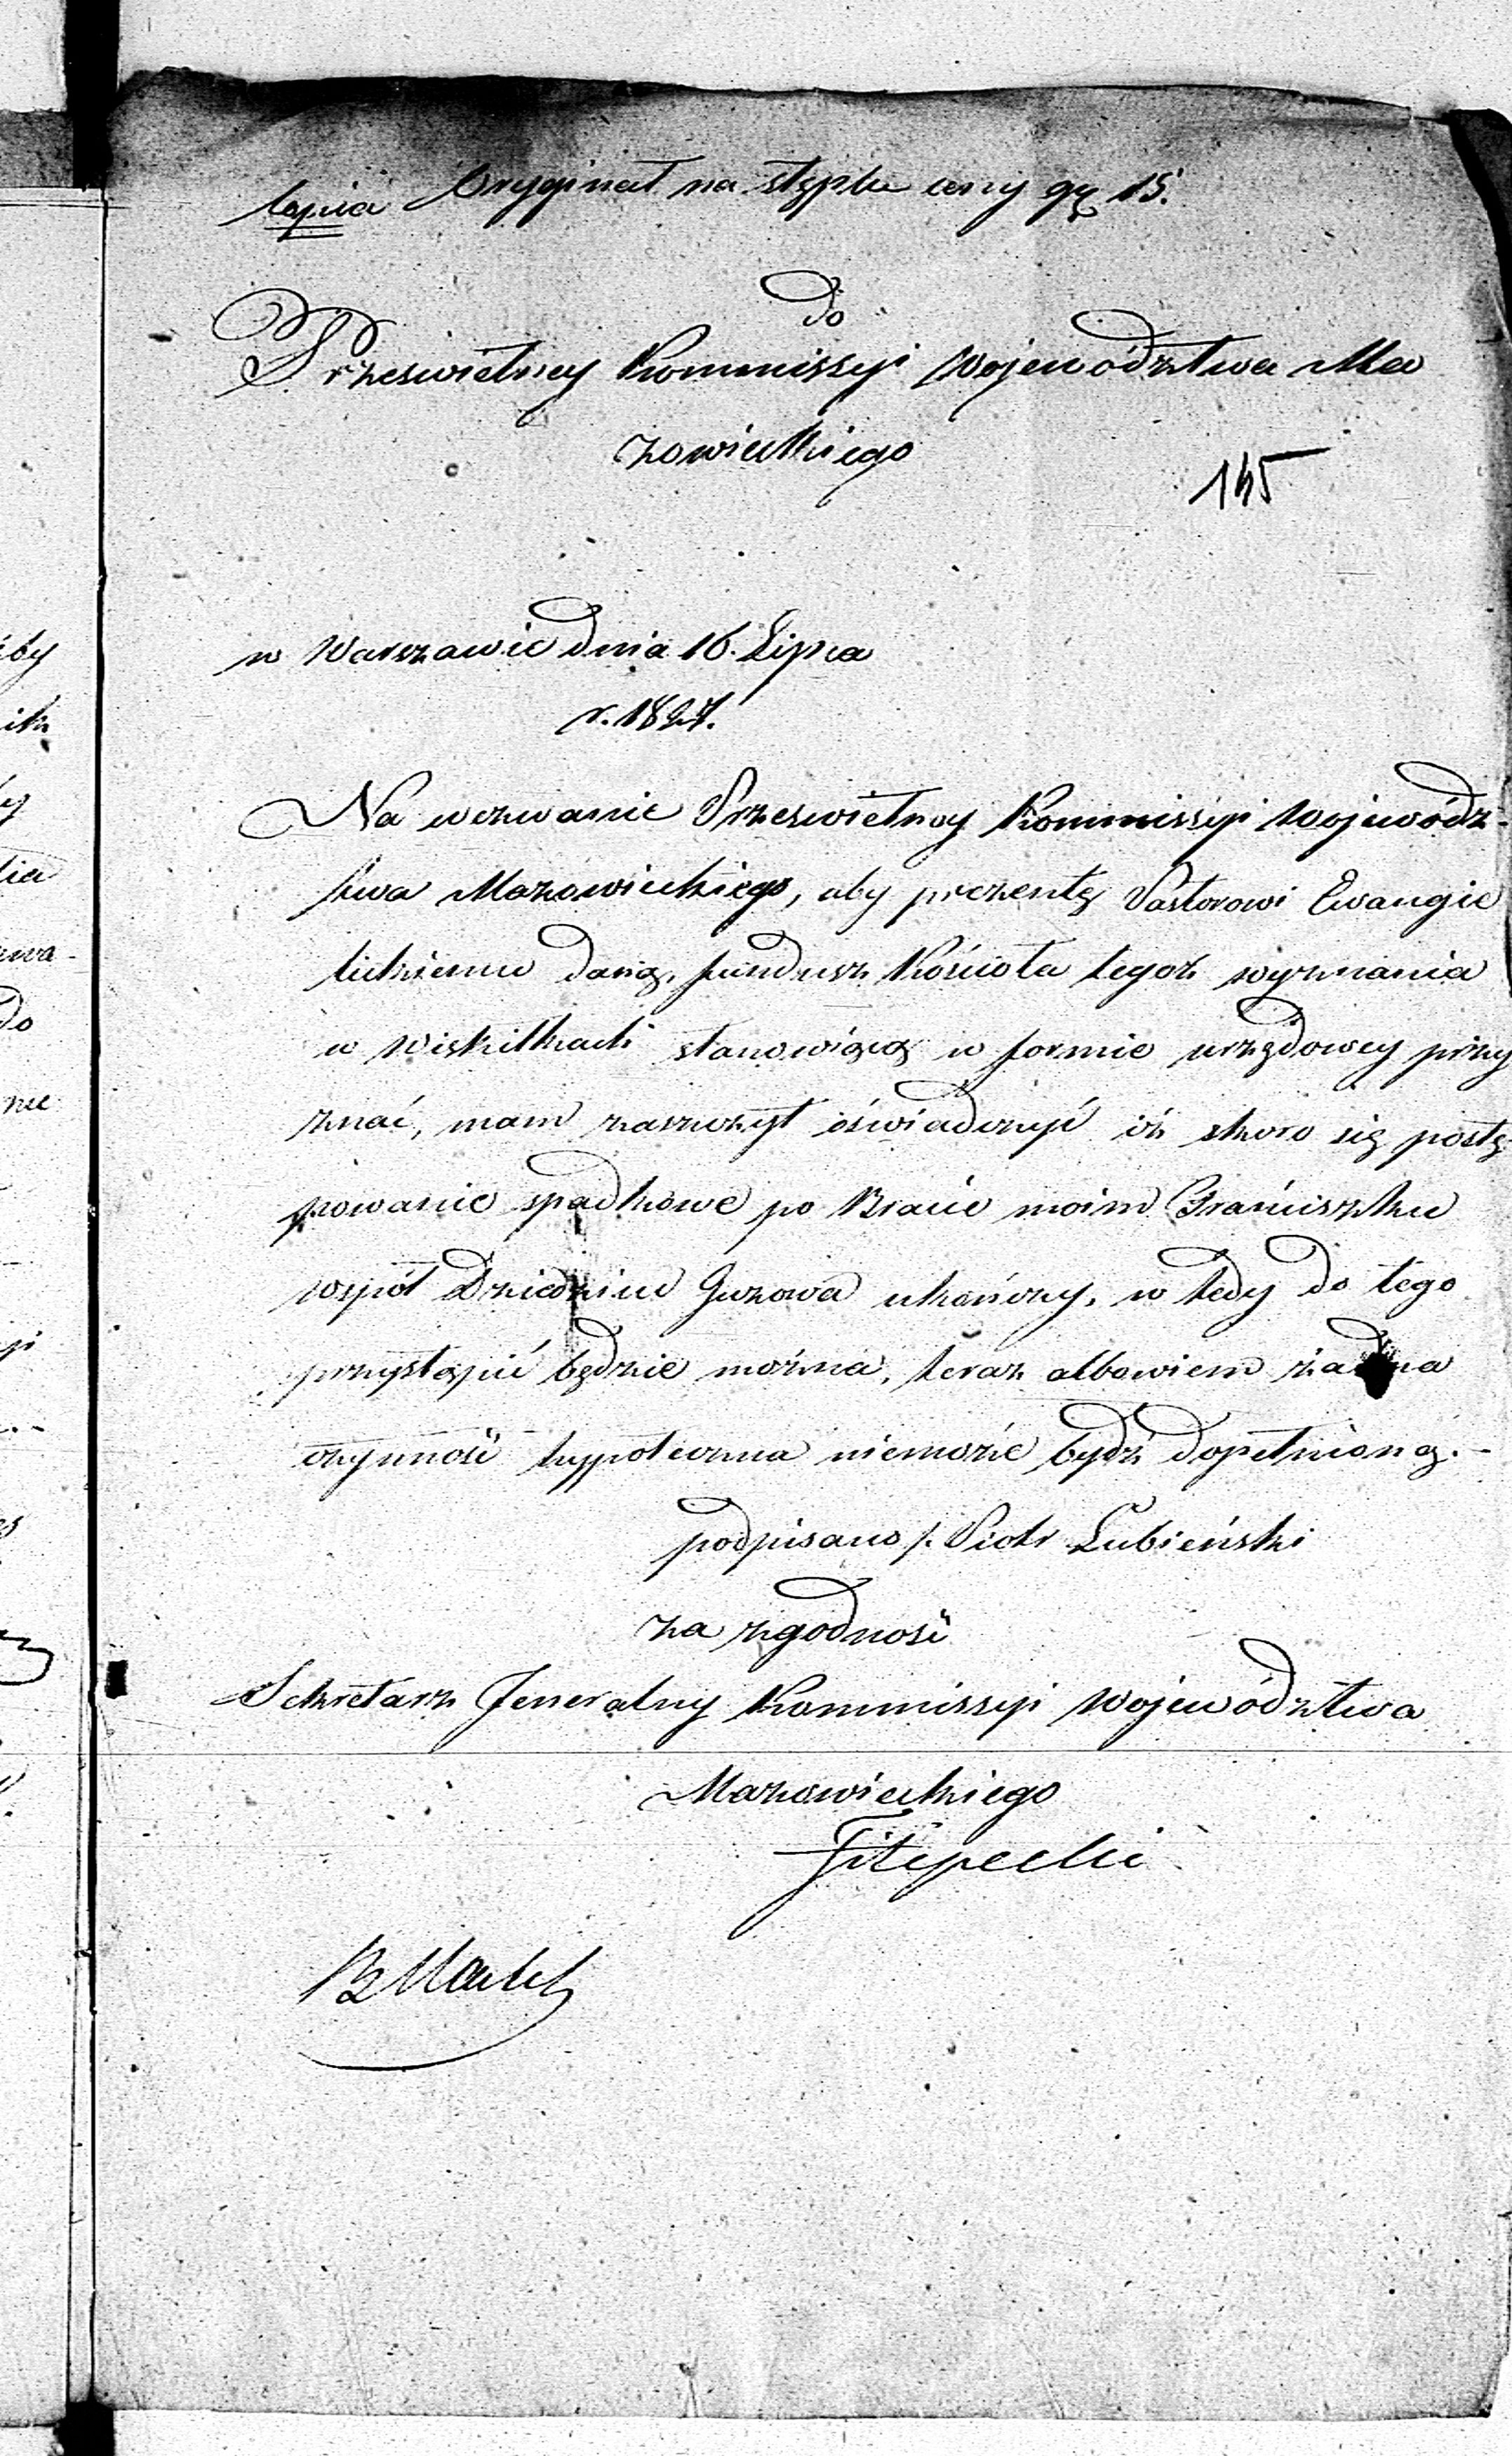 Copia Oryginał na stęplu ceny gr 15.
do
Prześwietney Kommissyi Województwa Ma
zowieckiego
145
w Warszawie dnia 16. Lipca
r. 1827.
Na wezwanie Prześwietney Kommissyi Wojewódz-
twa Mazowieckiego, aby prezentę Pastorowi Ewangie
lickiemu daną, fundusz Kościoła tegoż wyznania
w Wiskitkach stanowiącą w formie urzędowey przy
znać, mam zaszczyt oświadczyć iż skoro się postę
powanie spadkowe po Bracie moim Franciszku
współ Dziedzicu Guzowa ukończy, w tedy do tego
przystąpić będzie można, teraz albowiem żadna
czynność hypoteczna niemoże bydź dopełnioną.-
podpisano /. Piotr Łubieński
za zgodność
Sekretarz Jeneralny Kommissyi Województwa
Mazowieckiego
Filipecki